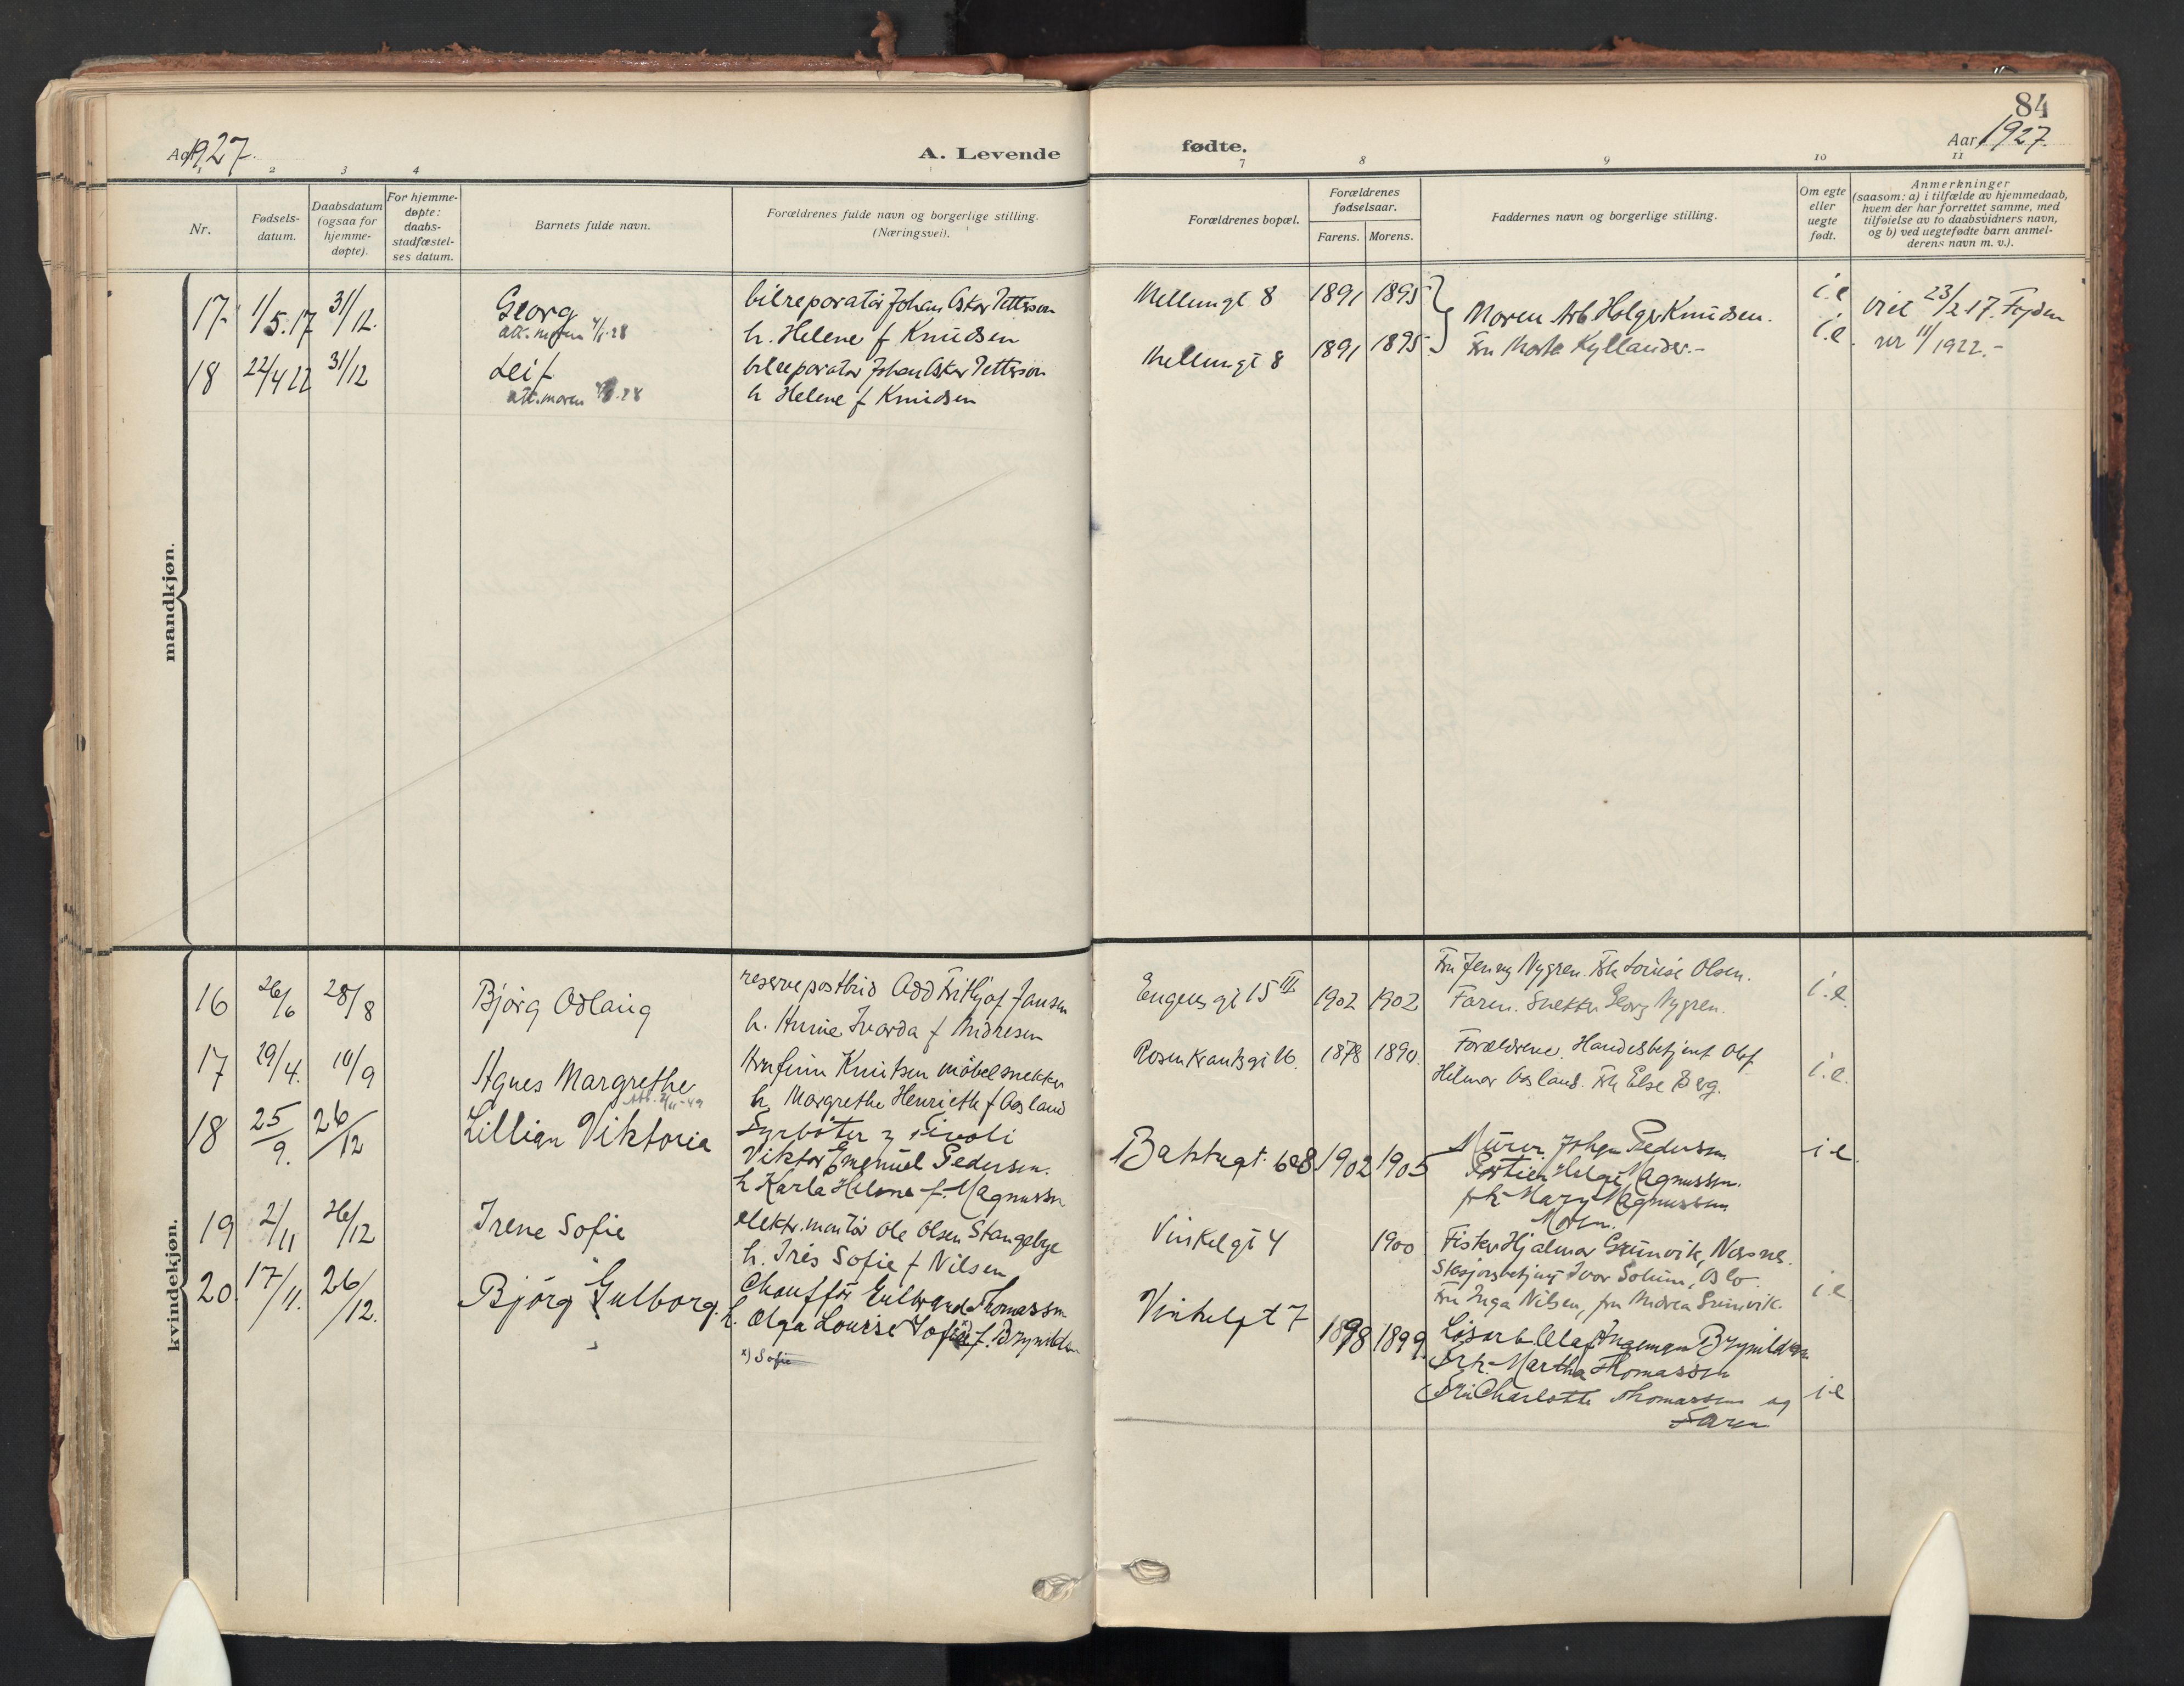 84
Aar 1927.
A. Levende
fødte.
Aar 1927.
1 2 3 4 7 8 9 10 11
Nr.
Fødsels-
datum.
Daabsdatum
(ogsaa for
hjemme-
døpte).
For hjemme-
døpte:
daabs-
stadfæstel-
ses datum.
Barnets fulde navn.
Forældrenes fulde navn og borgerlige stilling.
(Næringsvei).
Forældrenes bopæl.
Forældrenes
fødselsaar.
Farens. Morens.
Faddernes navn og borgerlige stilling.
Om egte
eller
uegte
født.
Anmerkninger
(saasom: a) i tilfælde av hjemmedaab,
hvem der har forrettet samme, med
tilføielse av to daabsvidners navn,
og b) ved uegtefødte barn anmel-
derens navn m. v.).
mandkjøn.
17 1/5.17 31/12. Georg bilreparatør Johan Oskar Pettersson Mellumgt 8 1891 1895 Moren Arb Holger Knudsen. i.e viet 23/2 17.
att. moren 4/1-28 h. Helene f Knudsen
18 22/4 22 31/12 Leif bilreparatør Johan Oskar Pettersson Mellumgt 8 1891 1895 Fru Marta Kyllander.- i.e. 11/1922.-
att. moren 28 h Helene f Knudsen
kvindekjøn.
16 26/6 28/8 Bjørg Odlaug reservepostbud Odd Frithjof Jansen Engensgt 15 III 1902 1902 Fru Jenny Nygren. Frk Louise Olsen. i.e.
h. Anine Ivarda f Andresen Faren. Snekker Georg Nygren.
17 29/4. 10/9 Agnes Margrethe Arnfinn Knutsen møbelsnekker Rosenkrantsgt 16. 1878 1890. Forældrene. Handelsbetjent Olaf i.e.
h Margrethe Henriette f Aasland Hilmar Aasland. Frk Else Berg.
18 25/9. 26/12 Lillian Viktoria Fyrbøter Tivoli
Viktor Emanuel Pedersen. Bakkegt. 6c8 1902 1905 Murer Johan Pedersen i e.
h Karla Helene f. Magnussen Helge Magnussen.
frk Mary Magnussen
Moren.
19 2/11 26/12 Irene Sofie elektr. montør Ole Olsen Stangebye Vinkelgt 4 1900 Fisker Hjalmar Grunvik, Nesne.
h. Iris Sofie f Nilsen Stasjonsbetjent Ivar Solum, Oslo. i e.
Fru Inga Nilsen, fru Andrea Grunvik.
20. 17/11. 26/12. Bjørg Gulborg. Chauffør Edvard Thomassen Vinkelgt 7 1898 1899. Løsarb. Olaf Ingeman Brynildsen
h. Olga Lourise Sofie f. Brynildsen Frk. Martha Thomassen
x) Sofie Fru Charlotte Thomassen og i e
Faren